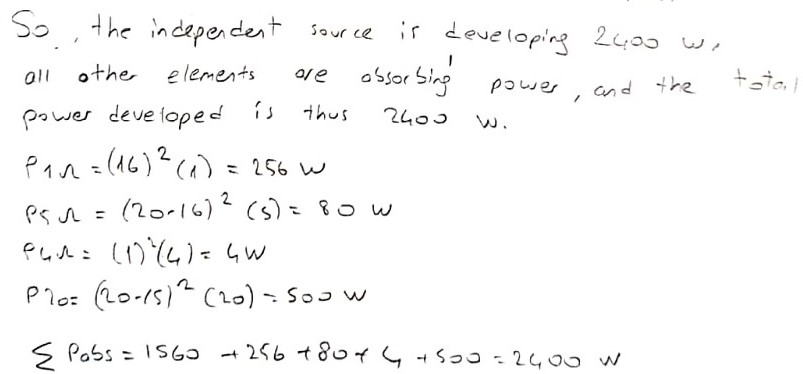 So, the independent source is developing 2400 w,
all other elements are absorbing power, and the total
power developed is thus 2400 w.
P1Ω = (16)²(1) = 256 W
P5Ω = (20-16)² (5) = 80 W
P4Ω = (1)²(4) = 4W
P20 = (20-15)² (20) = 500 W
Σ Pabs = 1560 + 256 + 80 + 4 + 500 = 2400 W